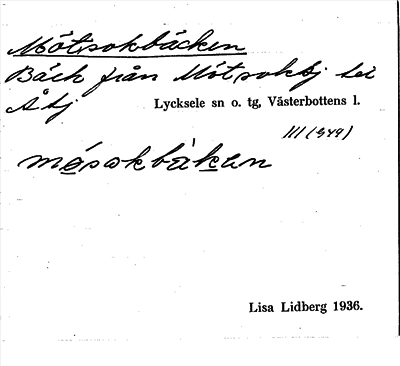 Mötsokbäcken
Bäck från Mötsoktj till
Åtj
Lycksele sn o. tg, Västerbottens l.
III (349)
mésokbàkən
Lisa Lidberg 1936.